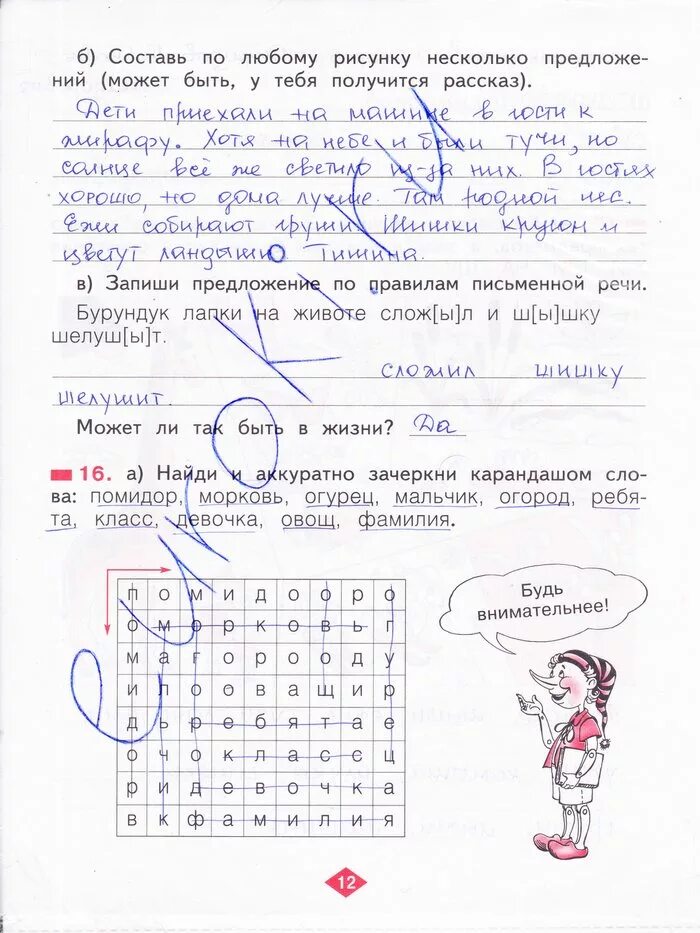 б) Составь по любому рисунку несколько предложе-
ний (может быть, у тебя получится рассказ).
Дети приехали на машине в гости к
жирафу. Хотя на небе и были тучи, но
солнце всё же светило из-за них. В гостях
хорошо, но дома лучше. Там родной лес.
Ежи собирают груши. Шишки кругом и
цветут ландыши. Тишина.
в) Запиши предложение по правилам письменной речи.
Бурундук лапки на животе слож[ы]л и ш[ы]шку
шелуш[ы]т.
сложил шишку
шелушит.
Может ли так быть в жизни? Да
16. а) Найди и аккуратно зачеркни карандашом сло-
ва: помидор, морковь, огурец, мальчик, огород, ребя-
та, класс, девочка, овощ, фамилия.
Будь
внимательнее!
п о м и д о о р о
о м о р к о в ь г
м а г о р о о д у
и л о о в а щ и р
д ь р е б я т а е
о ч о к л а с с ц
р и д е в о ч к а
в к ф а м и л и я
12
eurokи.ru